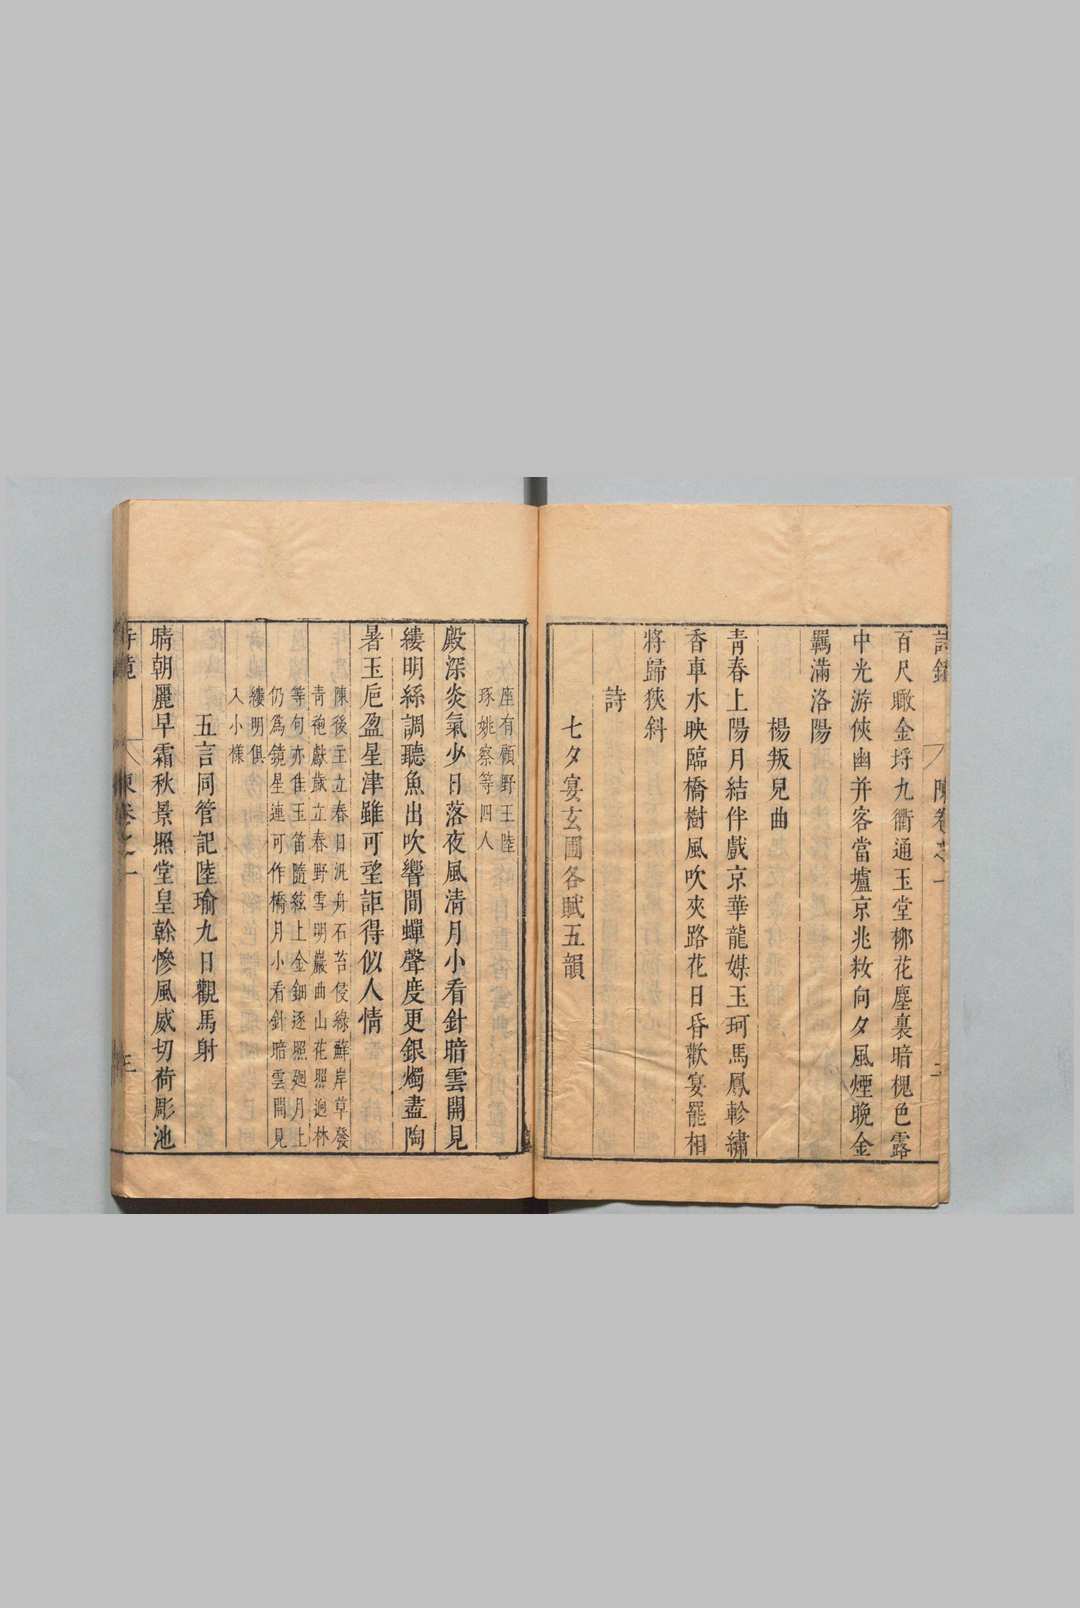 百尺瞰金埒九衢通玉堂柳花塵裏暗槐色露
中光游俠幽并客當壚京兆粧向夕風煙晚金
羈滿洛陽
楊叛兒曲
青春上陽月結伴戲京華龍媒玉珂馬鳳軫繡
香車水映臨橋樹風吹夾路花日昏歡宴罷相
將歸狹斜
詩
七夕宴玄圃各賦五韻
座有顧野王陸
琢姚察等四人
殿深炎氣少日落夜風清月小看針暗雲開見
縷明絲調聽魚出吹響間蟬聲度更銀燭盡陶
暑玉卮盈星津雖可望詎得似人情
陳後主立春日汎舟石苔侵綠蘚岸草發
青袍獻歲立春野雪明巖曲山花照迥林
等句亦佳玉笛隨絃上金鈿逐照廻月上
仍爲鏡星連可作橋月小看針暗雲開見
縷明俱
入小樣
五言同管記陸瑜九日觀馬射
晴朝麗早霜秋景照堂皇榦慘風威切荷彫池
陳卷之一
三